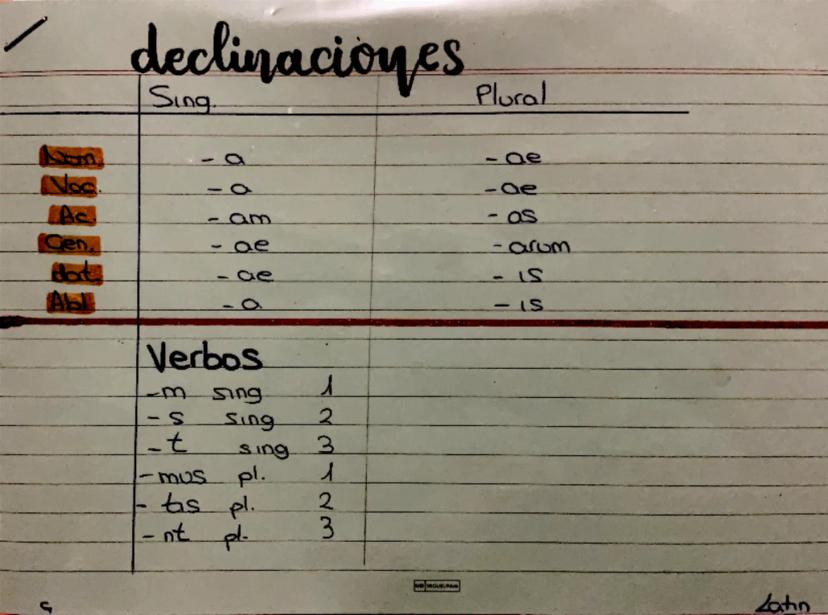 declinaciones
Sing. Plural
Nom. - a - ae
Voc. - a - ae
Ac. - am - as
Gen. - ae - arum
dat. - ae - is
Abl - a - is
Verbos
- m sing 1
- s sing 2
- t sing 3
- mus pl. 1
- tis pl. 2
- nt pl. 3
Latin